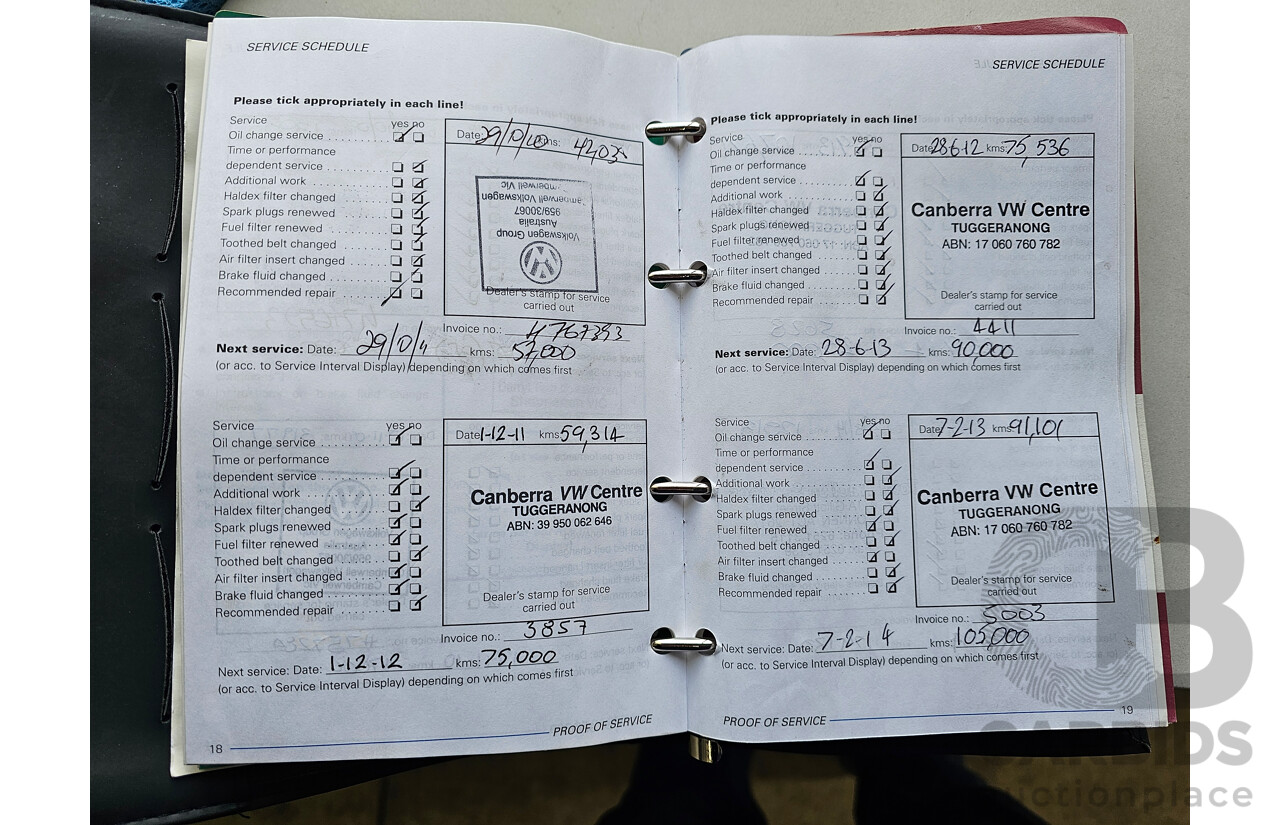 SERVICE SCHEDULE
Please tick appropriately in each line!
Service yes no
Oil change service
Time or performance
dependent service
Additional work
Haldex filter changed
Spark plugs renewed
Fuel filter renewed
Toothed belt changed
Air filter insert changed
Brake fluid changed
Recommended repair
Date: 29/10/10 kms:
Volkswagen Group
Australia
959/30067
Camberwell Volkswagen
Camberwell Vic
Dealer's stamp for service
carried out
Invoice no.:
Next service: Date: kms: 57,000
(or acc. to Service Interval Display) depending on which comes first
Service yes no
Oil change service
Time or performance
dependent service
Additional work
Haldex filter changed
Spark plugs renewed
Fuel filter renewed
Toothed belt changed
Air filter insert changed
Brake fluid changed
Recommended repair
Date 1-12-11 kms 59,314
Canberra VW Centre
TUGGERANONG
ABN: 39 950 062 646
Dealer's stamp for service
carried out
Invoice no.: 3857
Next service: Date: 1-12-12 kms: 75,000
(or acc. to Service Interval Display) depending on which comes first
18 PROOF OF SERVICE
SERVICE SCHEDULE
Please tick appropriately in each line!
Service yes no
Oil change service
Time or performance
dependent service
Additional work
Haldex filter changed
Spark plugs renewed
Fuel filter renewed
Toothed belt changed
Air filter insert changed
Brake fluid changed
Recommended repair
Date 28-6-12 kms: 75,536
Canberra VW Centre
TUGGERANONG
ABN: 17 060 760 782
Dealer's stamp for service
carried out
Invoice no.: 4411
Next service: Date: 28-6-13 kms: 90,000
(or acc. to Service Interval Display) depending on which comes first
Service yes no
Oil change service
Time or performance
dependent service
Additional work
Haldex filter changed
Spark plugs renewed
Fuel filter renewed
Toothed belt changed
Air filter insert changed
Brake fluid changed
Recommended repair
Date 7-2-13 kms 91,101
Canberra VW Centre
TUGGERANONG
ABN: 17 060 760 782
Dealer's stamp for service
carried out
Invoice no.: 5003
Next service: Date: 7-2-14 kms: 105,000
(or acc. to Service Interval Display) depending on which comes first
PROOF OF SERVICE 19